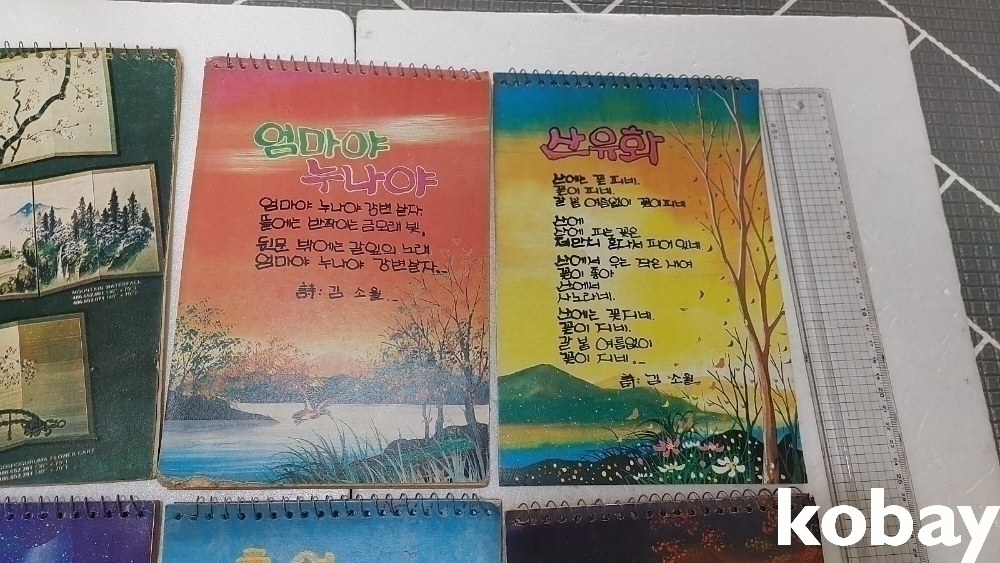 MOUNTAIN WATERFALL
엄마야
누나야
엄마야 누나야 강변 살자.
뜰에는 반짝이는 금모래 빛.
뒷문 밖에는 갈잎의 노래
엄마야 누나야 강변살자..
詩: 김 소월..
산유화
산에는 꽃 피네.
꽃이 피네.
갈 봄 여름없이 꽃이피네
산에
산에 피는 꽃은
저만치 혼자서 피어 있네.
산에서 우는 작은 새여
꽃이 좋아
산에서
사노라네.
산에는 꽃지네.
꽃이 지네.
갈 봄 여름없이
꽃이 지네..
詩: 김 소월..
FLOWER CART
kobay